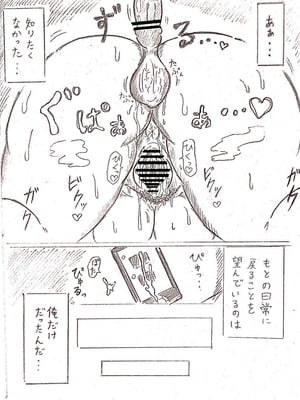 ああ…
知りたく
なかった…
ず
る…♡
たぷん
たぷん
ぐぱぁ
ぁ…♡
ひくっ♡
ひくっ♡
ビクッ
ビクッ
ガク
ガク
もとの日常に
戻ることを
望んでいるのは
ぴゅっ…
ぴゅるっ
ぼた
俺だけ
だったんだ…